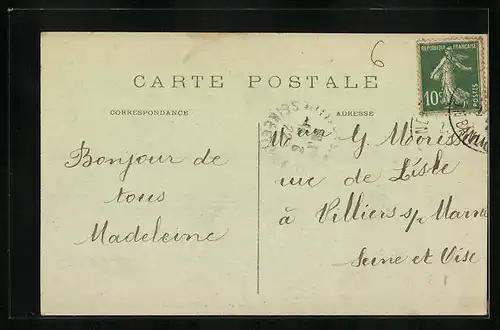 6
REPUBLIQUE FRANÇAISE
10c
POSTES
CARTE POSTALE
CORRESPONDANCE
ADRESSE
Bonjour de
tous
Madeleine
G. Morisse
rue de Lisle
à Villiers s/ Marne
Seine et Oise